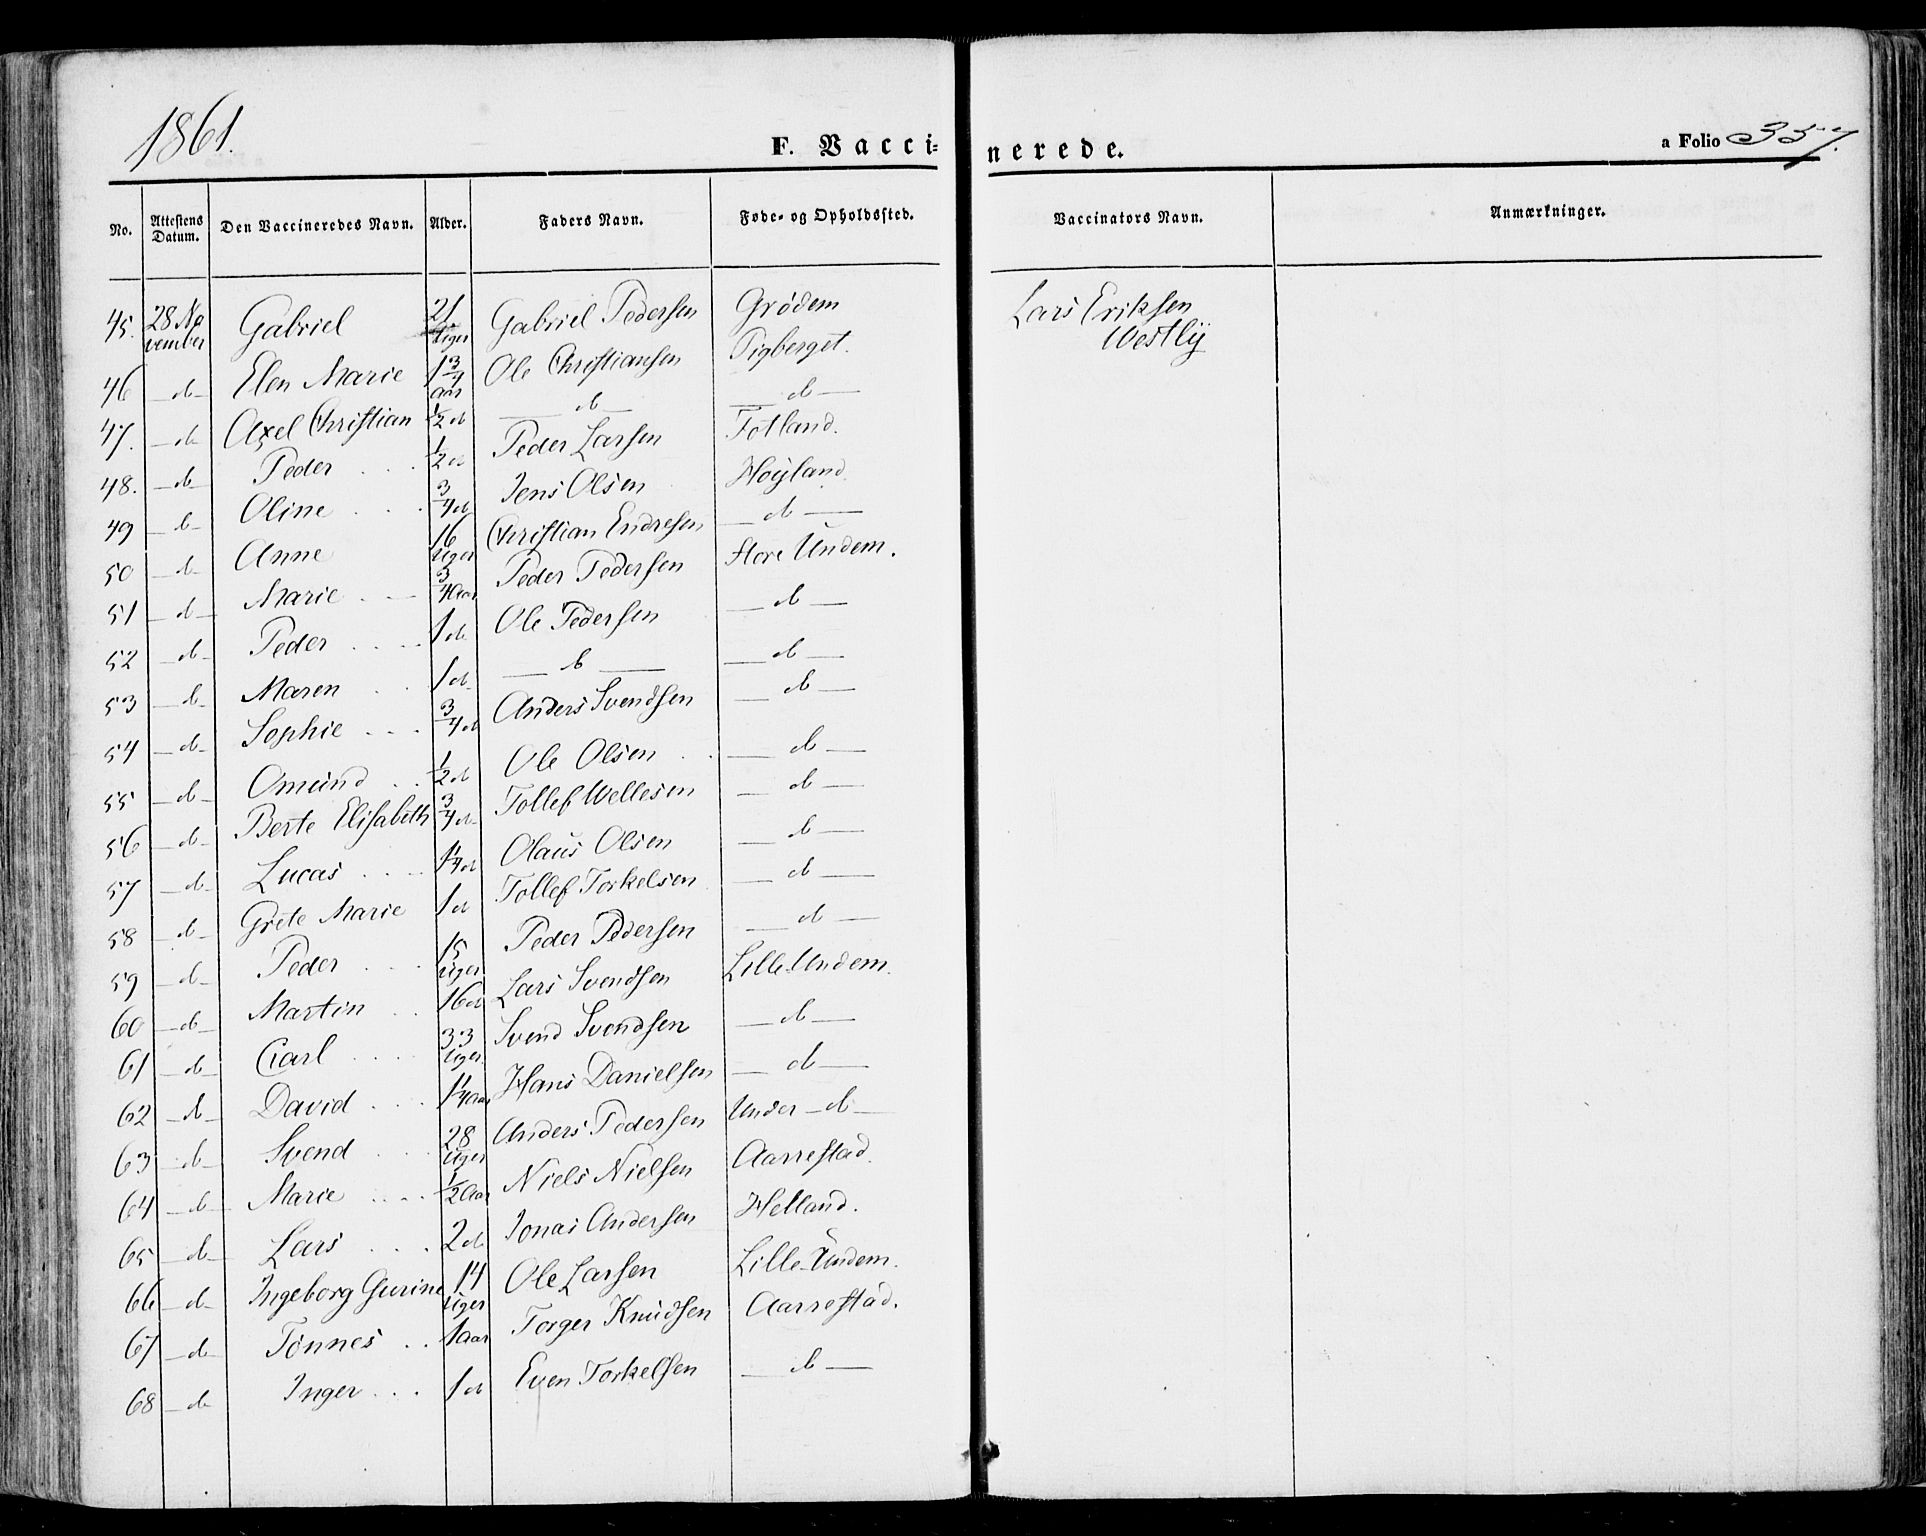 1861.
F. Vacci-
nerede.
a Folio 357.
No. | Attestens Datum. | Den Vaccineredes Navn. | Alder. | Faders Navn. | Føde- og Opholdssted. | Vaccinators Navn. | Anmærkninger.
45. | 28 November | Gabriel | 21 Uger | Gabriel Pedersen | Grödem | Lars Eriksen Westly
46 | -d- | Elen Marie | 1 3/4 aar | Ole Christiansen | Pigberget.
47. | -d- | Axel Christian | 1/2 d | -d- | -d-
48. | -d- | Peder | 1/2 d | Peder Larsen | Totland.
49 | -d- | Oline | 3/4 d | Jens Olsen | Høyland.
50 | -d- | Anne | 16 Uger | Christian Endresen | -d-
51 | -d- | Marie | 3/4 Aar | Peder Pedersen | store Undem.
52 | -d- | Peder | 1 d | Ole Pedersen | -d-
53 | -d- | Maren | 1 d | -d- | -d-
54 | -d- | Sophie | 3/4 d | Anders Svendsen | -d-
55 | -d- | Omund | 1/2 d | Ole Olsen | -d-
56 | -d- | Berte Elisabeth | 3/4 d | Tollef Wellesen | -d-
57 | -d- | Lucas | 1 1/4 d | Olaus Olsen | -d-
58 | -d- | Grete Marie | 1 d | Tollef Torkelsen | -d-
59 | -d- | Peder | 15 Uger | Peder Pedersen | -d-
60 | -d- | Martin | 16 d | Lars Svendsen | Lille Undem.
61 | -d- | Carl | 33 Uger | Svend Svendsen | -d-
62 | -d- | David | 1 1/4 Aar | Hans Danielsen | -d-
63 | -d- | Svend | 28 Uger | Anders Pedersen | Under -d-
64 | -d- | Marie | 1/2 Aar | Niels Nielsen | Aarrestad.
65 | -d- | Lars | 2 d | Jonas Andersen | Helland.
66 | -d- | Ingeborg Gurine | 14 Uger | Ole Larsen | Lille Undem.
67 | -d- | Tönnes | 1 aar | Torger Knudsen | Aarrestad.
68 | -d- | Inger | 1 d | Even Torkelsen | -d-